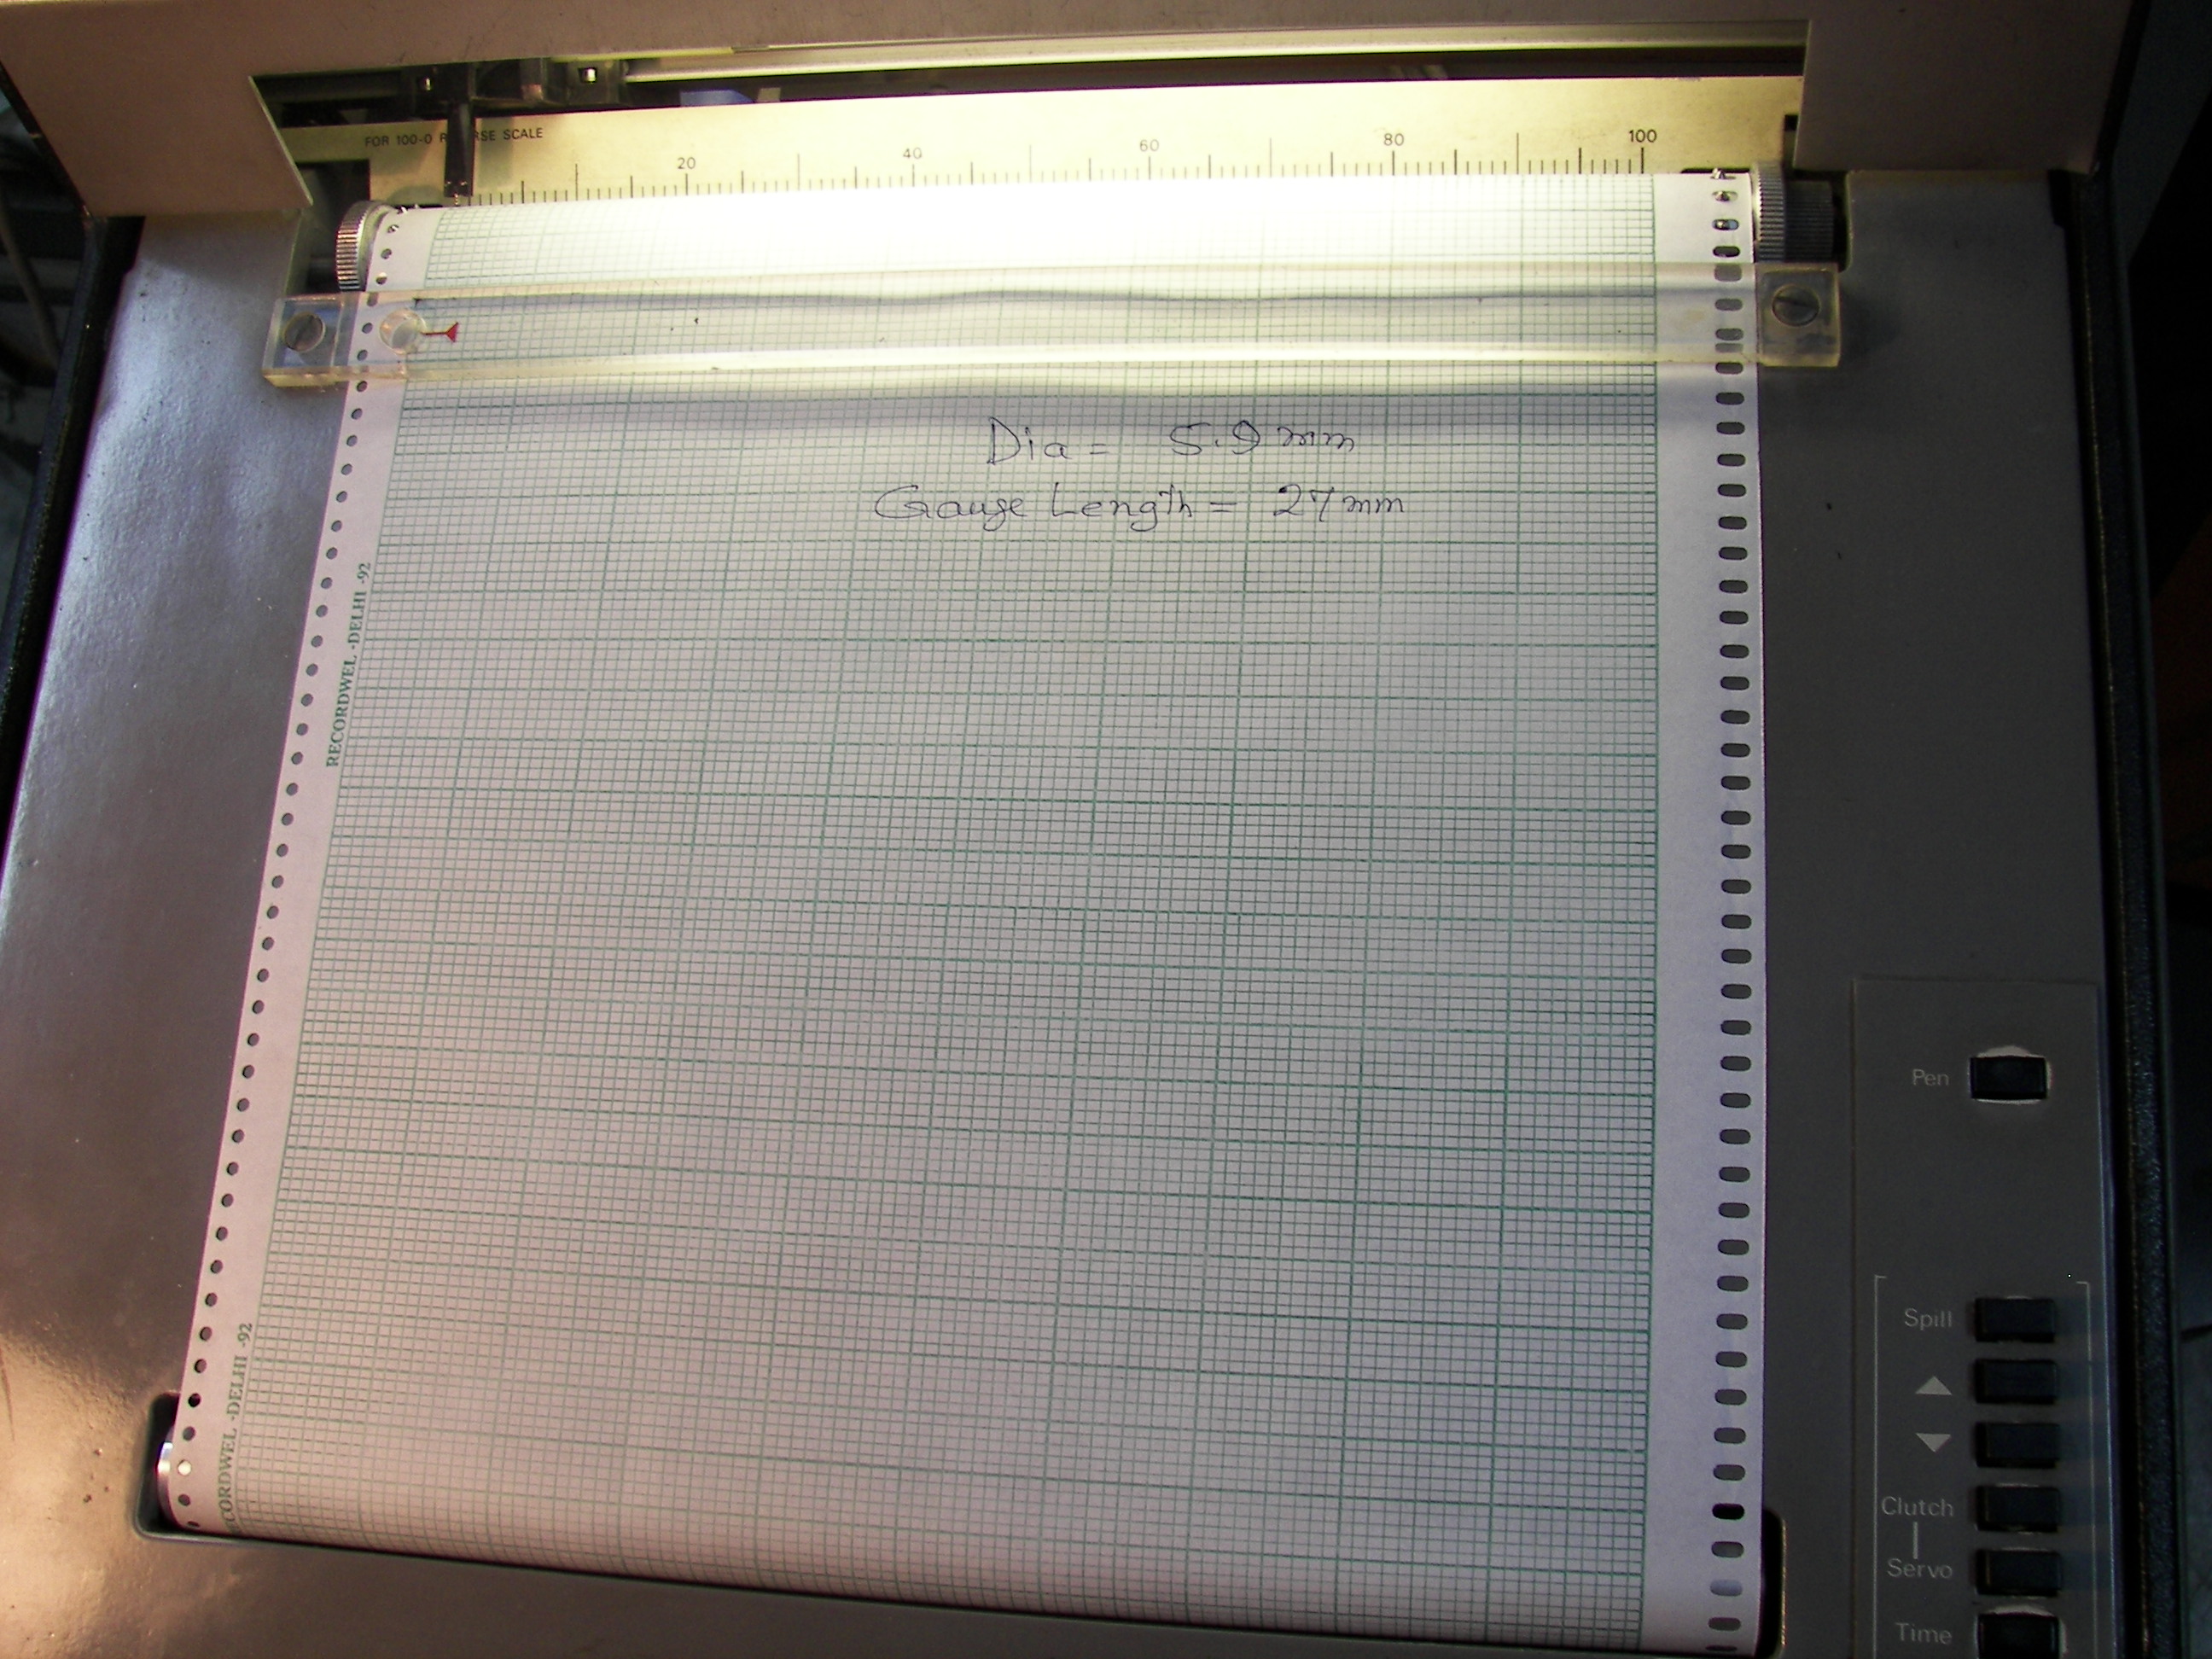 FOR 100-0 R RSE SCALE
20 40 60 80 100
Dia = 5.9 mm
Gauge Length = 27 mm
RECORDWEL -DELHI -92
CORDWEL -DELHI -92
Pen
Spill
Clutch
Servo
Time